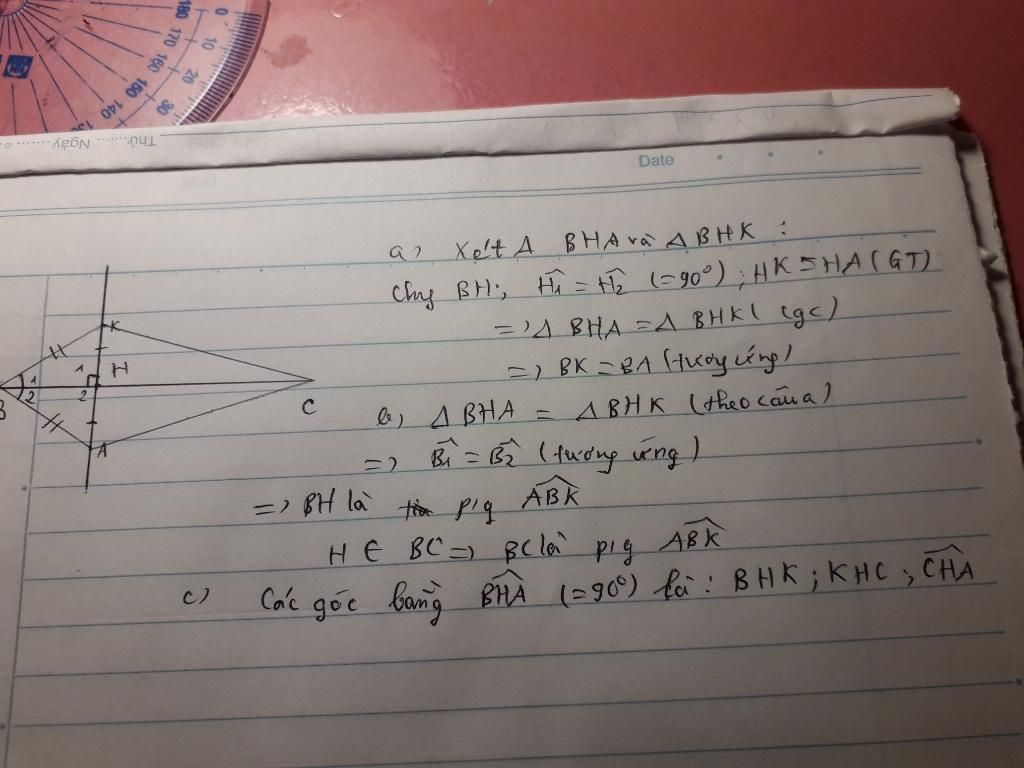 180 0
170 10
160 20
150 30
140
Thứ......... Ngày .........
Date
a, Xét Δ BHA và Δ BHK :
Chung BH ; Ĥ1 = Ĥ2 (=90°) ; HK = HA (GT)
=> Δ BHA = Δ BHK ( cgc)
=> BK = BA (tương ứng)
b, Δ BHA = Δ BHK (theo câu a)
=> B̂1 = B̂2 (tương ứng)
=> BH là p/g ABK
H ∈ BC => BC là p/g ABK
c) Các góc bằng BHA (=90°) là : BHK ; KHC ; CHA
K
1 H
B 1 2 2
C
A